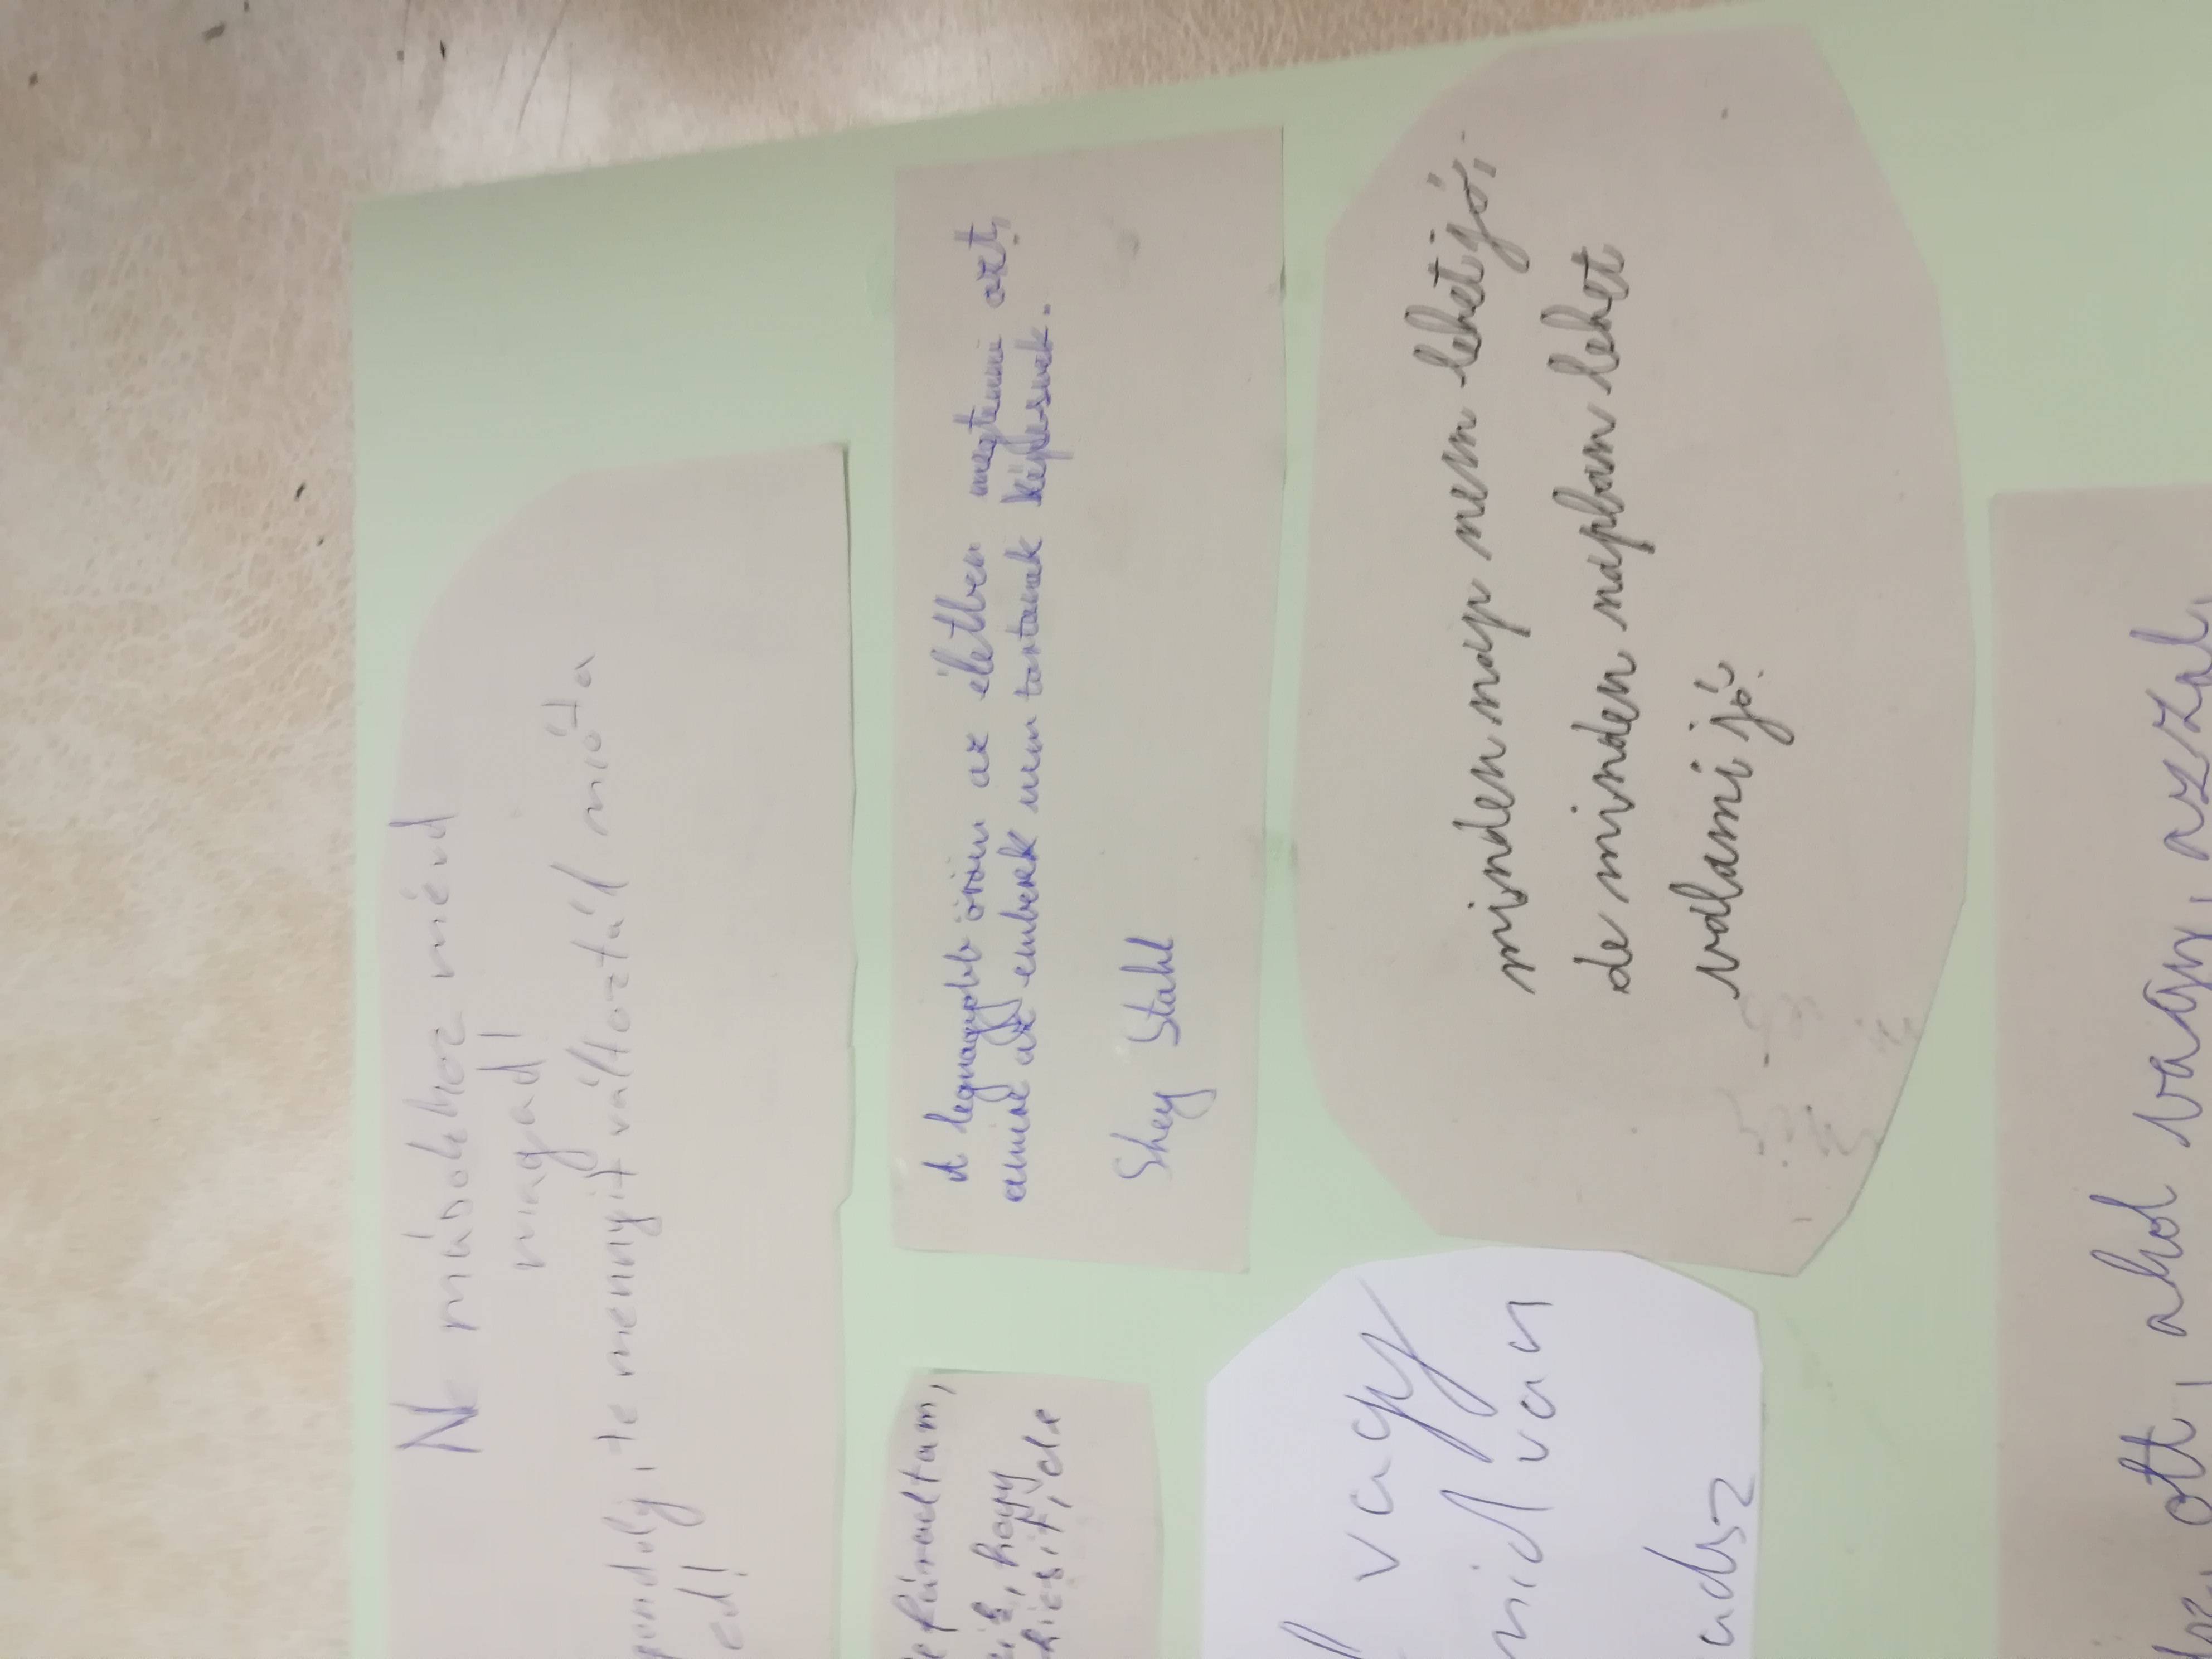 Ne másokhoz mérd
magad!
gondolj, te mennyit változtál mióta
ed!
A legnagyobb öröm az életben megtenni azt,
amire az emberek nem tartanak képesnek.
Shey Stahl
minden nap nem lehet jó,
de minden napban lehet
valami jó.
efáradtam,
hogy
de
vagy
mid van
adsz
ott, ahol vagy, azzal,